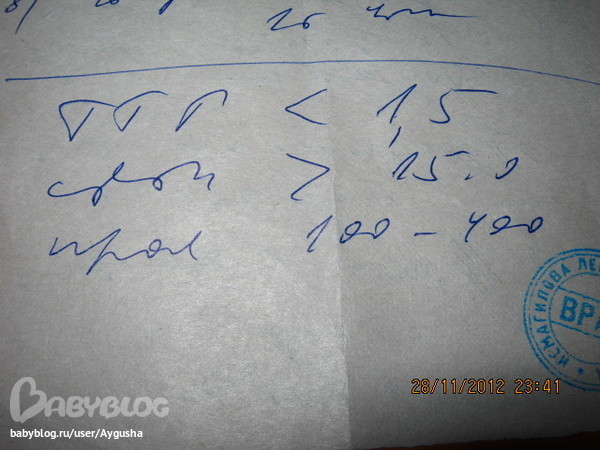 ТТГ < 1,5
своб > 15.0
прол 100 - 400
ИСМАГИЛОВА ЛЕ
ВРА
28/11/2012 23:41
BABYBLOG
babyblog.ru/user/Aygusha